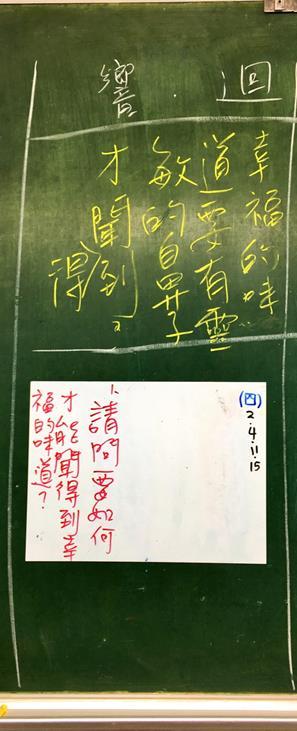 迴響
幸福的味
道要有靈
敏的鼻子
才聞得到。
(四)
2.4.11.15
1、請問要如何
才能聞得到幸
福的味道?